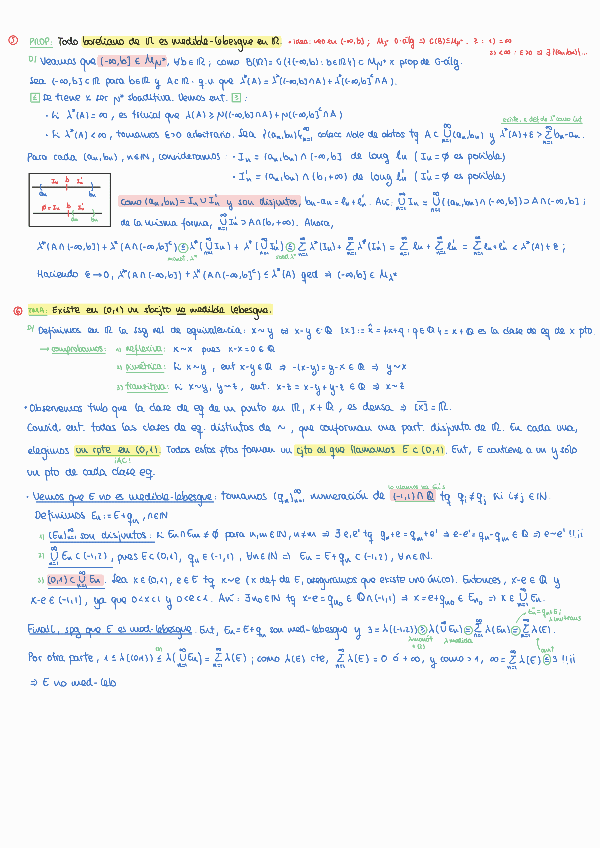 ⑤ PROP: Todo boreliano de ℝ es medible-Lebesgue en ℝ. • idea: veo en (-∞,b] ; M_λ* σ-álg ⇒ σ(B)⊆M_λ*. ≥ : 1) = ∞
2) < ∞ · ε>0 ⇒ ∃ {(an,bn)}...
D) Veamos que (-∞,b] ∈ M_λ*, ∀b∈ℝ; como B(ℝ) = σ({(-∞,b] : b∈ℝ}) ⊂ M_λ* x prop de σ-álg.
Sea (-∞,b] ⊂ ℝ para b∈ℝ y A⊂ℝ. q.v que λ*(A) = λ*((-∞,b]∩A) + λ*((-∞,b]ᶜ∩A).
≤ se tiene x ser λ* sbaditiva. Veamos ent. ≥ :
• Si λ*(A) = ∞, es trivial que λ(A) ≥ λ*((-∞,b]∩A) + λ*((-∞,b]ᶜ∩A)
• Si λ*(A) < ∞, tomamos ε>0 arbitrario. Sea {(an,bn)}ₙ₌₁^∞ colecc nble de abtos tq A ⊂ ⋃ₙ₌₁^∞ (an,bn) y λ*(A)+ε > ∑ₙ₌₁^∞ bn-an.
Para cada (an,bn), n∈ℕ, consideramos · In = (an,bn) ∩ (-∞,b] de long ln (In=∅ es posible)
· I'n = (an,bn) ∩ (b,+∞) de long l'n (I'n=∅ es posible)
In b I'n
an bn
∅=In b I'n
an bn
como (an,bn) = In ∪ I'n y son disjuntos, bn-an = ln+l'n. Así: ⋃ₙ₌₁^∞ In = ⋃ₙ₌₁^∞ ((an,bn)∩(-∞,b]) ⊃ A∩(-∞,b] ;
de la misma forma, ⋃ₙ₌₁^∞ I'n ⊃ A∩(b,+∞). Ahora,
λ*(A∩(-∞,b]) + λ*(A∩(-∞,b]ᶜ) ≤ λ*(⋃ₙ₌₁^∞ In) + λ*(⋃ₙ₌₁^∞ I'n) ≤ ∑ₙ₌₁^∞ λ*(In) + ∑ₙ₌₁^∞ λ*(I'n) = ∑ₙ₌₁^∞ ln + ∑ₙ₌₁^∞ l'n = ∑ₙ₌₁^∞ ln+l'n < λ*(A)+ε ;
monot. λ*
Haciendo ε→0, λ*(A∩(-∞,b]) + λ*(A∩(-∞,b]ᶜ) ≤ λ*(A) qed ⇒ (-∞,b] ∈ M_λ*
⑥ TMA: Existe en (0,1) un sbcjto no medible Lebesgue.
D) Definimos en ℝ la sig rel de equivalencia: x∼y ⇔ x-y∈ℚ [x] := x̂ = {x+q : q∈ℚ} = x+ℚ es la clase de eq de x pto
→ comprobamos: 1) reflexiva: x∼x pues x-x=0∈ℚ
2) simétrica: Si x∼y, ent x-y∈ℚ ⇒ -(x-y) = y-x∈ℚ ⇒ y∼x
3) transitiva: Si x∼y, y∼z, ent. x-z = x-y+y-z∈ℚ ⇒ x∼z
• Observemos tmb que la clase de eq de un punto en ℝ, x+ℚ, es densa ⇒ [x] = ℝ.
Consid. ent. todas las clases de eq. distintas de ∼, que conforman una part. disjunta de ℝ. En cada una,
elegimos un rpte en (0,1). Todos estos ptos forman un cjto al que llamamos E⊂(0,1). Ent, E contiene a un y sólo
¡AC!
un pto de cada clase eq.
• Vemos que E no es medible-Lebesgue: tomamos (qn)ₙ₌₁^∞ numeración de (-1,1)∩ℚ tq qi≠qj si i≠j∈ℕ.
Definimos En := E+qn, n∈ℕ
1) (En)ₙ₌₁^∞ son disjuntos: si En∩Em≠∅ para n,m∈ℕ, n≠m ⇒ ∃ e,e' tq qn+e = qm+e' ⇒ e-e' = qm-qn∈ℚ ⇒ e∼e' !!¡¡
2) ⋃ₙ₌₁^∞ En ⊂ (-1,2), pues E⊂(0,1), qn∈(-1,1), ∀n∈ℕ ⇒ En = E+qn ⊂ (-1,2), ∀n∈ℕ.
3) (0,1) ⊂ ⋃ₙ₌₁^∞ En. Sea x∈(0,1), e∈E tq x∼e (x def de E, aseguramos que existe uno único). Entonces, x-e∈ℚ y
x-e∈(-1,1), ya que 0<x<1 y 0<e<1. Así: ∃n₀∈ℕ tq x-e = qn₀ ∈ ℚ∩(-1,1) ⇒ x = e+qn₀ ∈ En₀ ⇒ x∈⋃ₙ₌₁^∞ En.
Finalt, spg que E es med-Lebesgue. Ent, En = E+qn son med-Lebesgue y 3 = λ((-1,2)) ≥ λ(⋃ₙ₌₁^∞ En) = ∑ₙ₌₁^∞ λ(En) = ∑ₙ₌₁^∞ λ(E).
λ monot + (2) λ medida
Por otra parte, 1 ≤ λ((0,1)) ≤ λ(⋃ₙ₌₁^∞ En) = ∑ₙ₌₁^∞ λ(E) ; como λ(E) cte, ∑ₙ₌₁^∞ λ(E) = 0 ó +∞, y como ≥1, ∞ = ∑ₙ₌₁^∞ λ(E) ≤ 3 !!¡¡
⇒ E no med-Leb